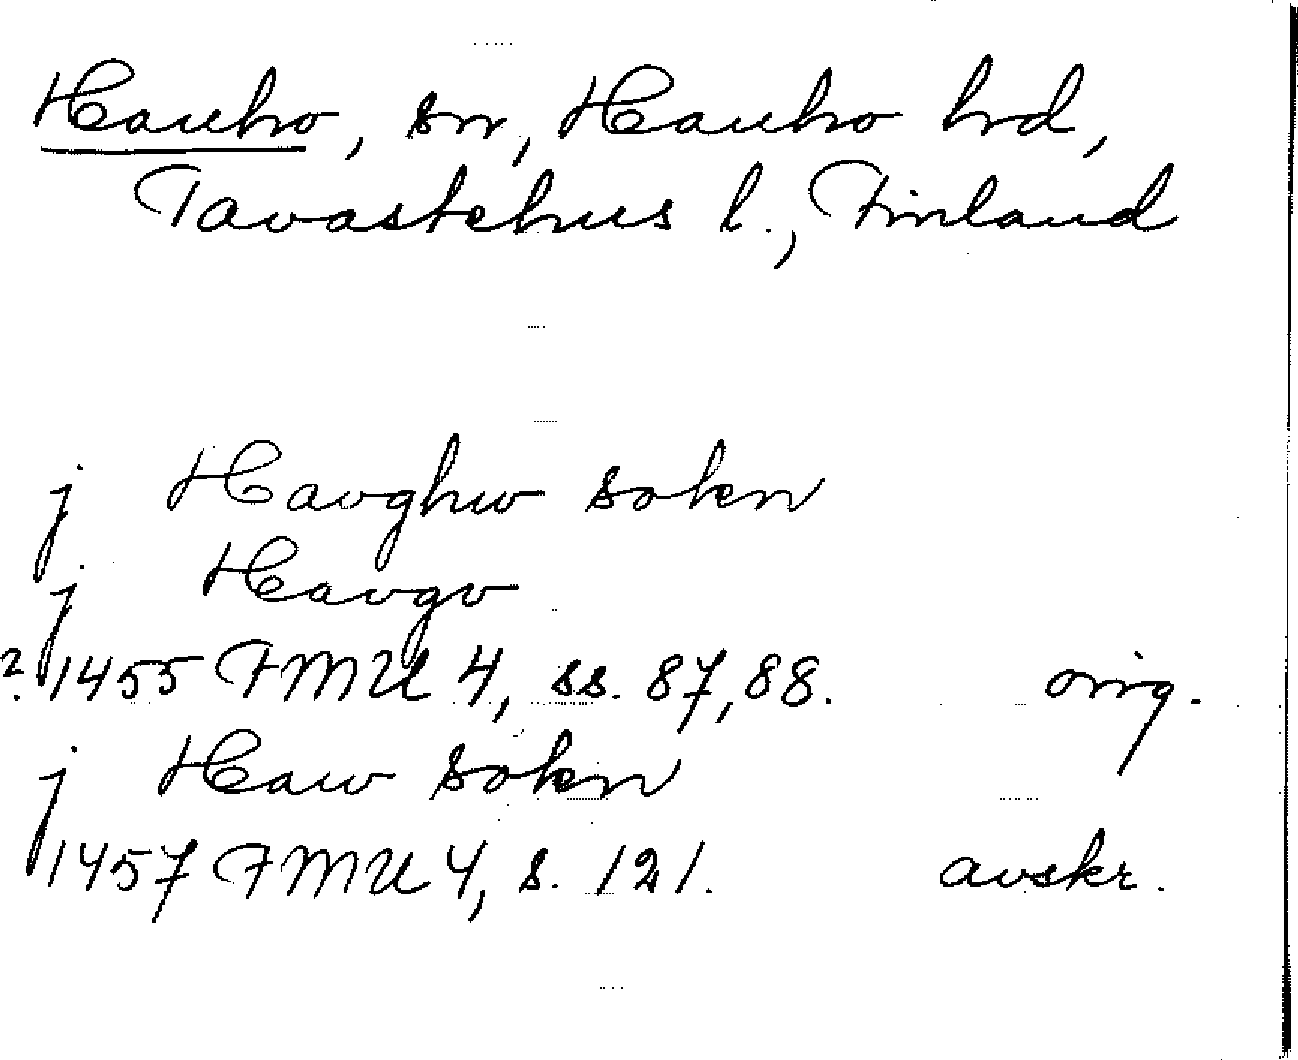 Hauho, sn, Hauho hrd,
Tavastehus l., Finland
j Havghw sokn
j Havgv
? 1455 FMU 4, ss. 87,88. orig.
j Haw sokn
1457 FMU 4, s. 121. avskr.